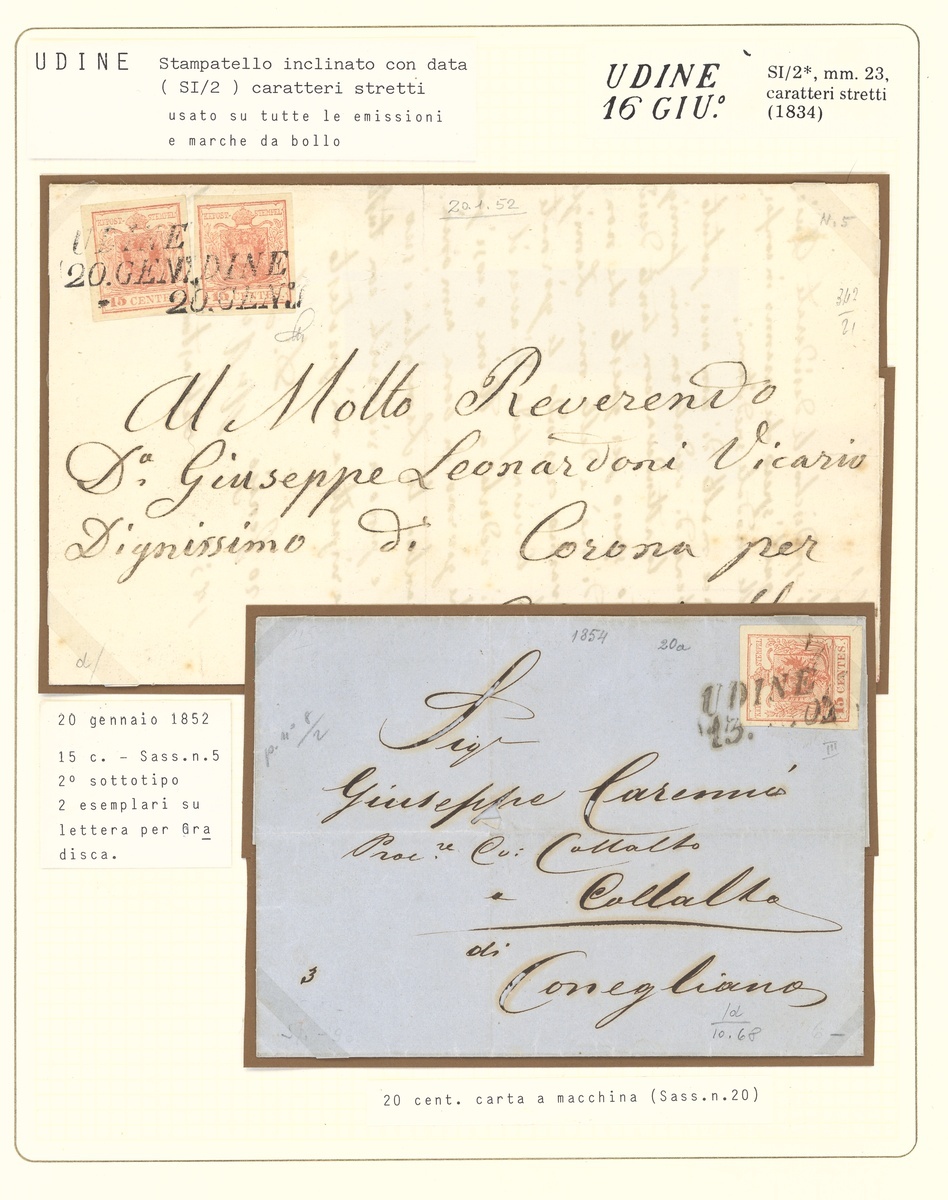 UDINE Stampatello inclinato con data
( SI/2 ) caratteri stretti
usato su tutte le emissioni
e marche da bollo
UDINE
16 GIU.º
SI/2*, mm. 23,
caratteri stretti
(1834)
20.1.52
N. 5
342
21
UDINE
20.GEN.
UDINE
20.GEN.
15 CENTES
Al Molto Reverendo
D.ⁿ Giuseppe Leonardoni Vicario
Dignissimo di Corona per
d/
20 gennaio 1852
15 c. - Sass.n.5
2º sottotipo
2 esemplari su
lettera per Gra
disca.
1854
20a
UDINE
15 CENTES.
III
Sigr
Giuseppe
Proc.re Co: Collalto
a Collalto
di
Conegliano
3
1d
10.68
20 cent. carta a macchina (Sass.n.20)